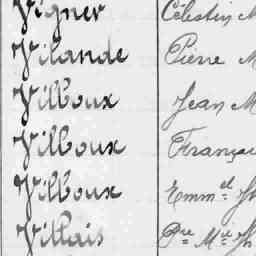 Vigner Célestin M
Vilande Pierre M
Vilboux Jean M
Vilboux Françoi
Vilboux Emm.el J
Villais P.re M.ie